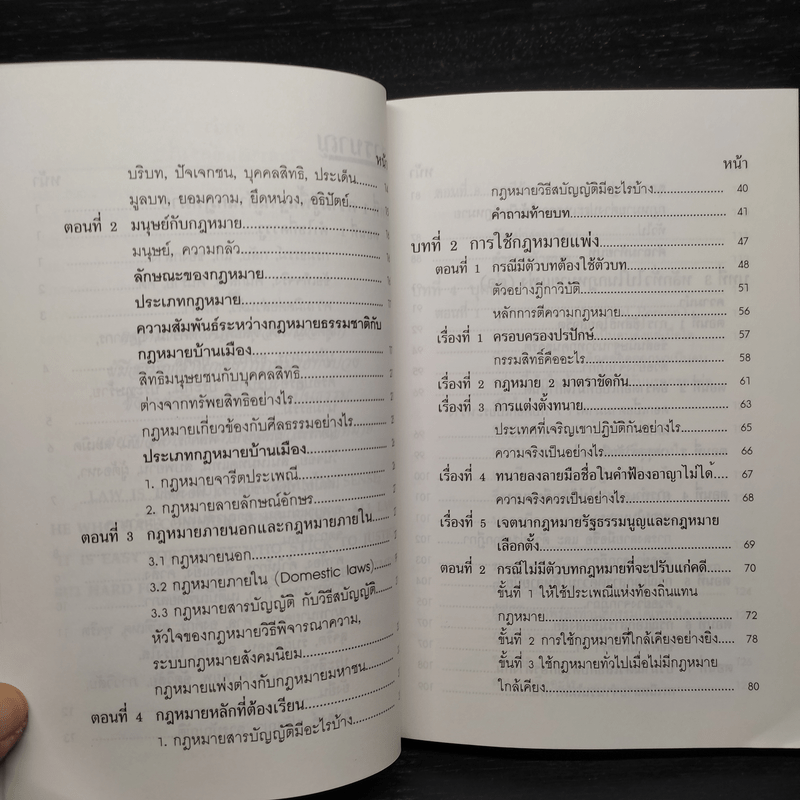 หน้า
บริบท, ปัจเจกชน, บุคคลสิทธิ, ประเด็น........
มูลบท, ยอมความ, ยึดหน่วง, อธิปัตย์........
ตอนที่ 2 มนุษย์กับกฎหมาย........
มนุษย์, ความกลัว........
ลักษณะของกฎหมาย........
ประเภทกฎหมาย........
ความสัมพันธ์ระหว่างกฎหมายธรรมชาติกับ
กฎหมายบ้านเมือง........
สิทธิมนุษยชนกับบุคคลสิทธิ
ต่างจากทรัพยสิทธิอย่างไร........
กฎหมายเกี่ยวข้องกับศีลธรรมอย่างไร........
ประเภทกฎหมายบ้านเมือง........
1. กฎหมายจารีตประเพณี........
2. กฎหมายลายลักษณ์อักษร........
ตอนที่ 3 กฎหมายภายนอกและกฎหมายภายใน........
3.1 กฎหมายนอก........
3.2 กฎหมายภายใน (Domestic laws)........
3.3 กฎหมายสารบัญญัติ กับวิธีสบัญญัติ........
หัวใจของกฎหมายวิธีพิจารณาความ,
ระบบกฎหมายสังคมนิยม........
กฎหมายแพ่งต่างกับกฎหมายมหาชน........
ตอนที่ 4 กฎหมายหลักที่ต้องเรียน........
1. กฎหมายสารบัญญัติมีอะไรบ้าง........
หน้า
กฎหมายวิธีสบัญญัติมีอะไรบ้าง........ 40
คำถามท้ายบท........ 41
บทที่ 2 การใช้กฎหมายแพ่ง........ 47
ตอนที่ 1 กรณีมีตัวบทต้องใช้ตัวบท........ 48
ตัวอย่างฎีกาวิบัติ........ 51
หลักการตีความกฎหมาย........ 56
เรื่องที่ 1 ครอบครองปรปักษ์........ 57
กรรมสิทธิ์คืออะไร........ 58
เรื่องที่ 2 กฎหมาย 2 มาตราขัดกัน........ 61
เรื่องที่ 3 การแต่งตั้งทนาย........ 63
ประเทศที่เจริญเขาปฏิบัติกันอย่างไร........ 65
ความจริงเป็นอย่างไร........ 66
เรื่องที่ 4 ทนายลงลายมือชื่อในคำฟ้องอาญาไม่ได้........ 67
ความจริงควรเป็นอย่างไร........ 68
เรื่องที่ 5 เจตนากฎหมายรัฐธรรมนูญและกฎหมาย
เลือกตั้ง........ 69
ตอนที่ 2 กรณีไม่มีตัวบทกฎหมายที่จะปรับแก่คดี........ 70
ขั้นที่ 1 ให้ใช้ประเพณีแห่งท้องถิ่นแทน
กฎหมาย........ 72
ขั้นที่ 2 การใช้กฎหมายที่ใกล้เคียงอย่างยิ่ง..... 78
ขั้นที่ 3 ใช้กฎหมายทั่วไปเมื่อไม่มีกฎหมาย
ใกล้เคียง........ 80